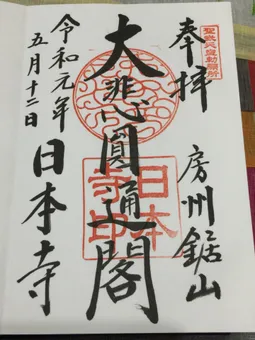 奉拝
房州鋸山
聖武天皇勅願所
大悲心圓通閣
日本寺印
令和元年
五月十二日
日本寺